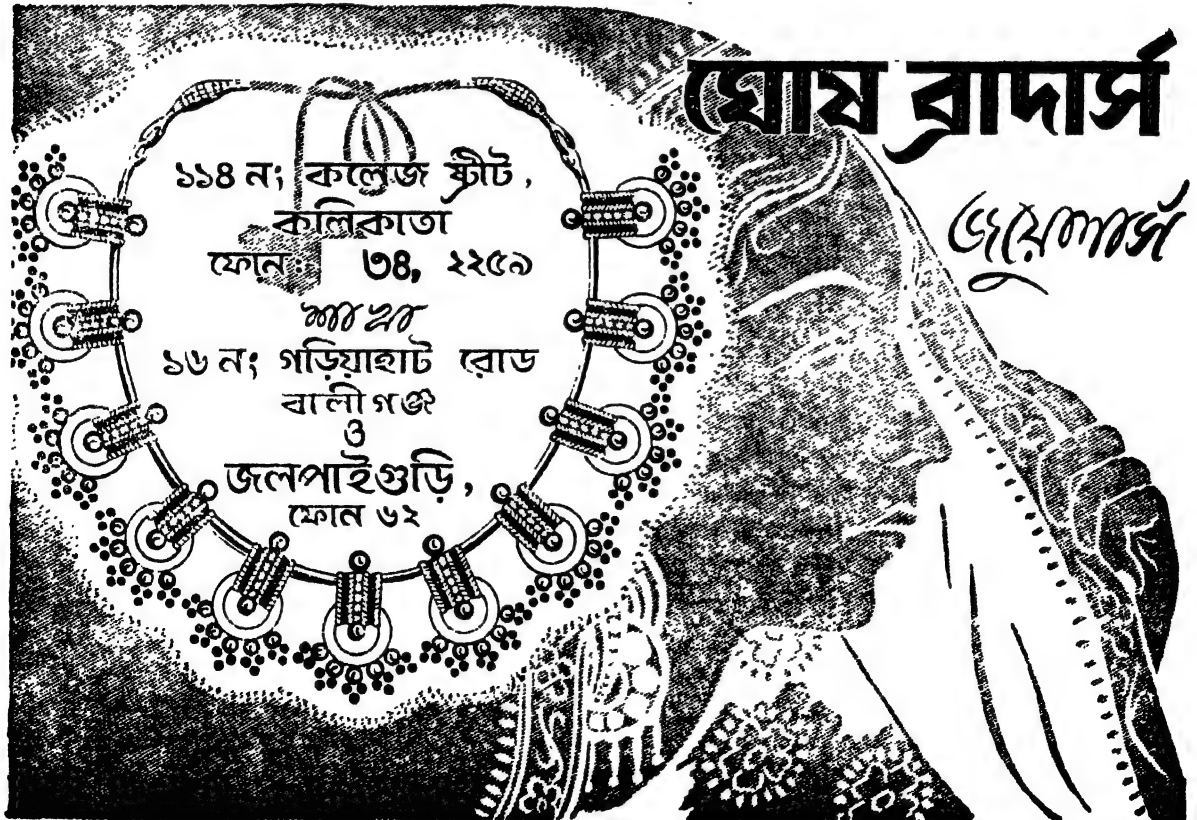 ঘোষ ব্রাদার্স
জুয়েলার্স
১১৪ নং কলেজ ষ্ট্রীট,
কলিকাতা
ফোন: ৩৪, ২২৫৯
শাখা
১৬ নং গড়িয়াহাট রোড
বালীগঞ্জ
ও
জলপাইগুড়ি,
ফোন ৬২